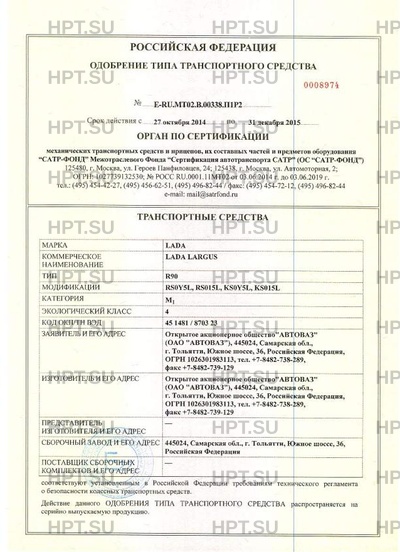 HPT.SU HPT.SU HPT.SU
РОССИЙСКАЯ ФЕДЕРАЦИЯ
ОДОБРЕНИЕ ТИПА ТРАНСПОРТНОГО СРЕДСТВА
0008974
№ E-RU.MT02.B.00338.П1Р2
Срок действия с 27 октября 2014 по 31 декабря 2015
ОРГАН ПО СЕРТИФИКАЦИИ
механических транспортных средств и прицепов, их составных частей и предметов оборудования
"САТР-ФОНД" Межотраслевого Фонда "Сертификация автотранспорта САТР" (ОС "САТР-ФОНД")
125480, г. Москва, ул. Героев Панфиловцев, 24; 125438, г. Москва, ул. Автомоторная, 2;
ОГРН: 1027739132530; № РОСС RU.0001.11МТ02 от 03.06.2014 г. до 03.06.2019 г.
тел.: (495) 454-42-27, (495) 456-62-51, (495) 496-82-44 / факс: (495) 454-72-12, (495) 496-82-44
e-mail: mail@satrfond.ru
HPT.SU HPT.SU HPT.SU
ТРАНСПОРТНЫЕ СРЕДСТВА
МАРКА LADA
КОММЕРЧЕСКОЕ LADA LARGUS
НАИМЕНОВАНИЕ
ТИП R90
МОДИФИКАЦИИ RS0Y5L, RS015L, KS0Y5L, KS015L
КАТЕГОРИЯ M1
ЭКОЛОГИЧЕСКИЙ КЛАСС 4
КОД ОКП/ТН ВЭД 45 1481 / 8703 23
HPT.SU HPT.SU HPT.SU
ЗАЯВИТЕЛЬ И ЕГО АДРЕС Открытое акционерное общество "АВТОВАЗ"
(ОАО "АВТОВАЗ"), 445024, Самарская обл.,
г. Тольятти, Южное шоссе, 36, Российская Федерация,
ОГРН 1026301983113, тел. +7-8482-738-289,
факс +7-8482-739-129
ИЗГОТОВИТЕЛЬ И ЕГО АДРЕС Открытое акционерное общество "АВТОВАЗ"
(ОАО "АВТОВАЗ"), 445024, Самарская обл.,
г. Тольятти, Южное шоссе, 36, Российская Федерация,
ОГРН 1026301983113, тел. +7-8482-738-289,
факс +7-8482-739-129
HPT.SU HPT.SU HPT.SU
ПРЕДСТАВИТЕЛЬ —
ИЗГОТОВИТЕЛЯ И ЕГО АДРЕС
СБОРОЧНЫЙ ЗАВОД И ЕГО АДРЕС 445024, Самарская обл., г. Тольятти, Южное шоссе, 36,
Российская Федерация
ПОСТАВЩИК СБОРОЧНЫХ —
КОМПЛЕКТОВ И ЕГО АДРЕС
соответствуют установленным в Российской Федерации требованиям технического регламента
о безопасности колесных транспортных средств.
Действие данного ОДОБРЕНИЯ ТИПА ТРАНСПОРТНОГО СРЕДСТВА распространяется на
серийно выпускаемую продукцию.
HPT.SU HPT.SU HPT.SU